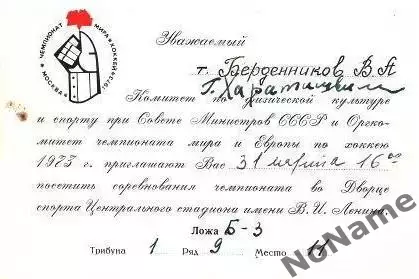 ЧЕМПИОНАТ МИРА ХОККЕЙ
МОСКВА 1973
Уважаемый
т. Берденников В А
Комитет по физической культуре
и спорту при Совете Министров СССР и Оргко-
митет чемпионата мира и Европы по хоккею
1973 г. приглашают Вас 31 марта 16⁰⁰
посетить соревнования чемпионата во Дворце
спорта Центрального стадиона имени В. И. Ленина.
Ложа Б-3
Трибуна 1 Ряд 9 Место
NoName